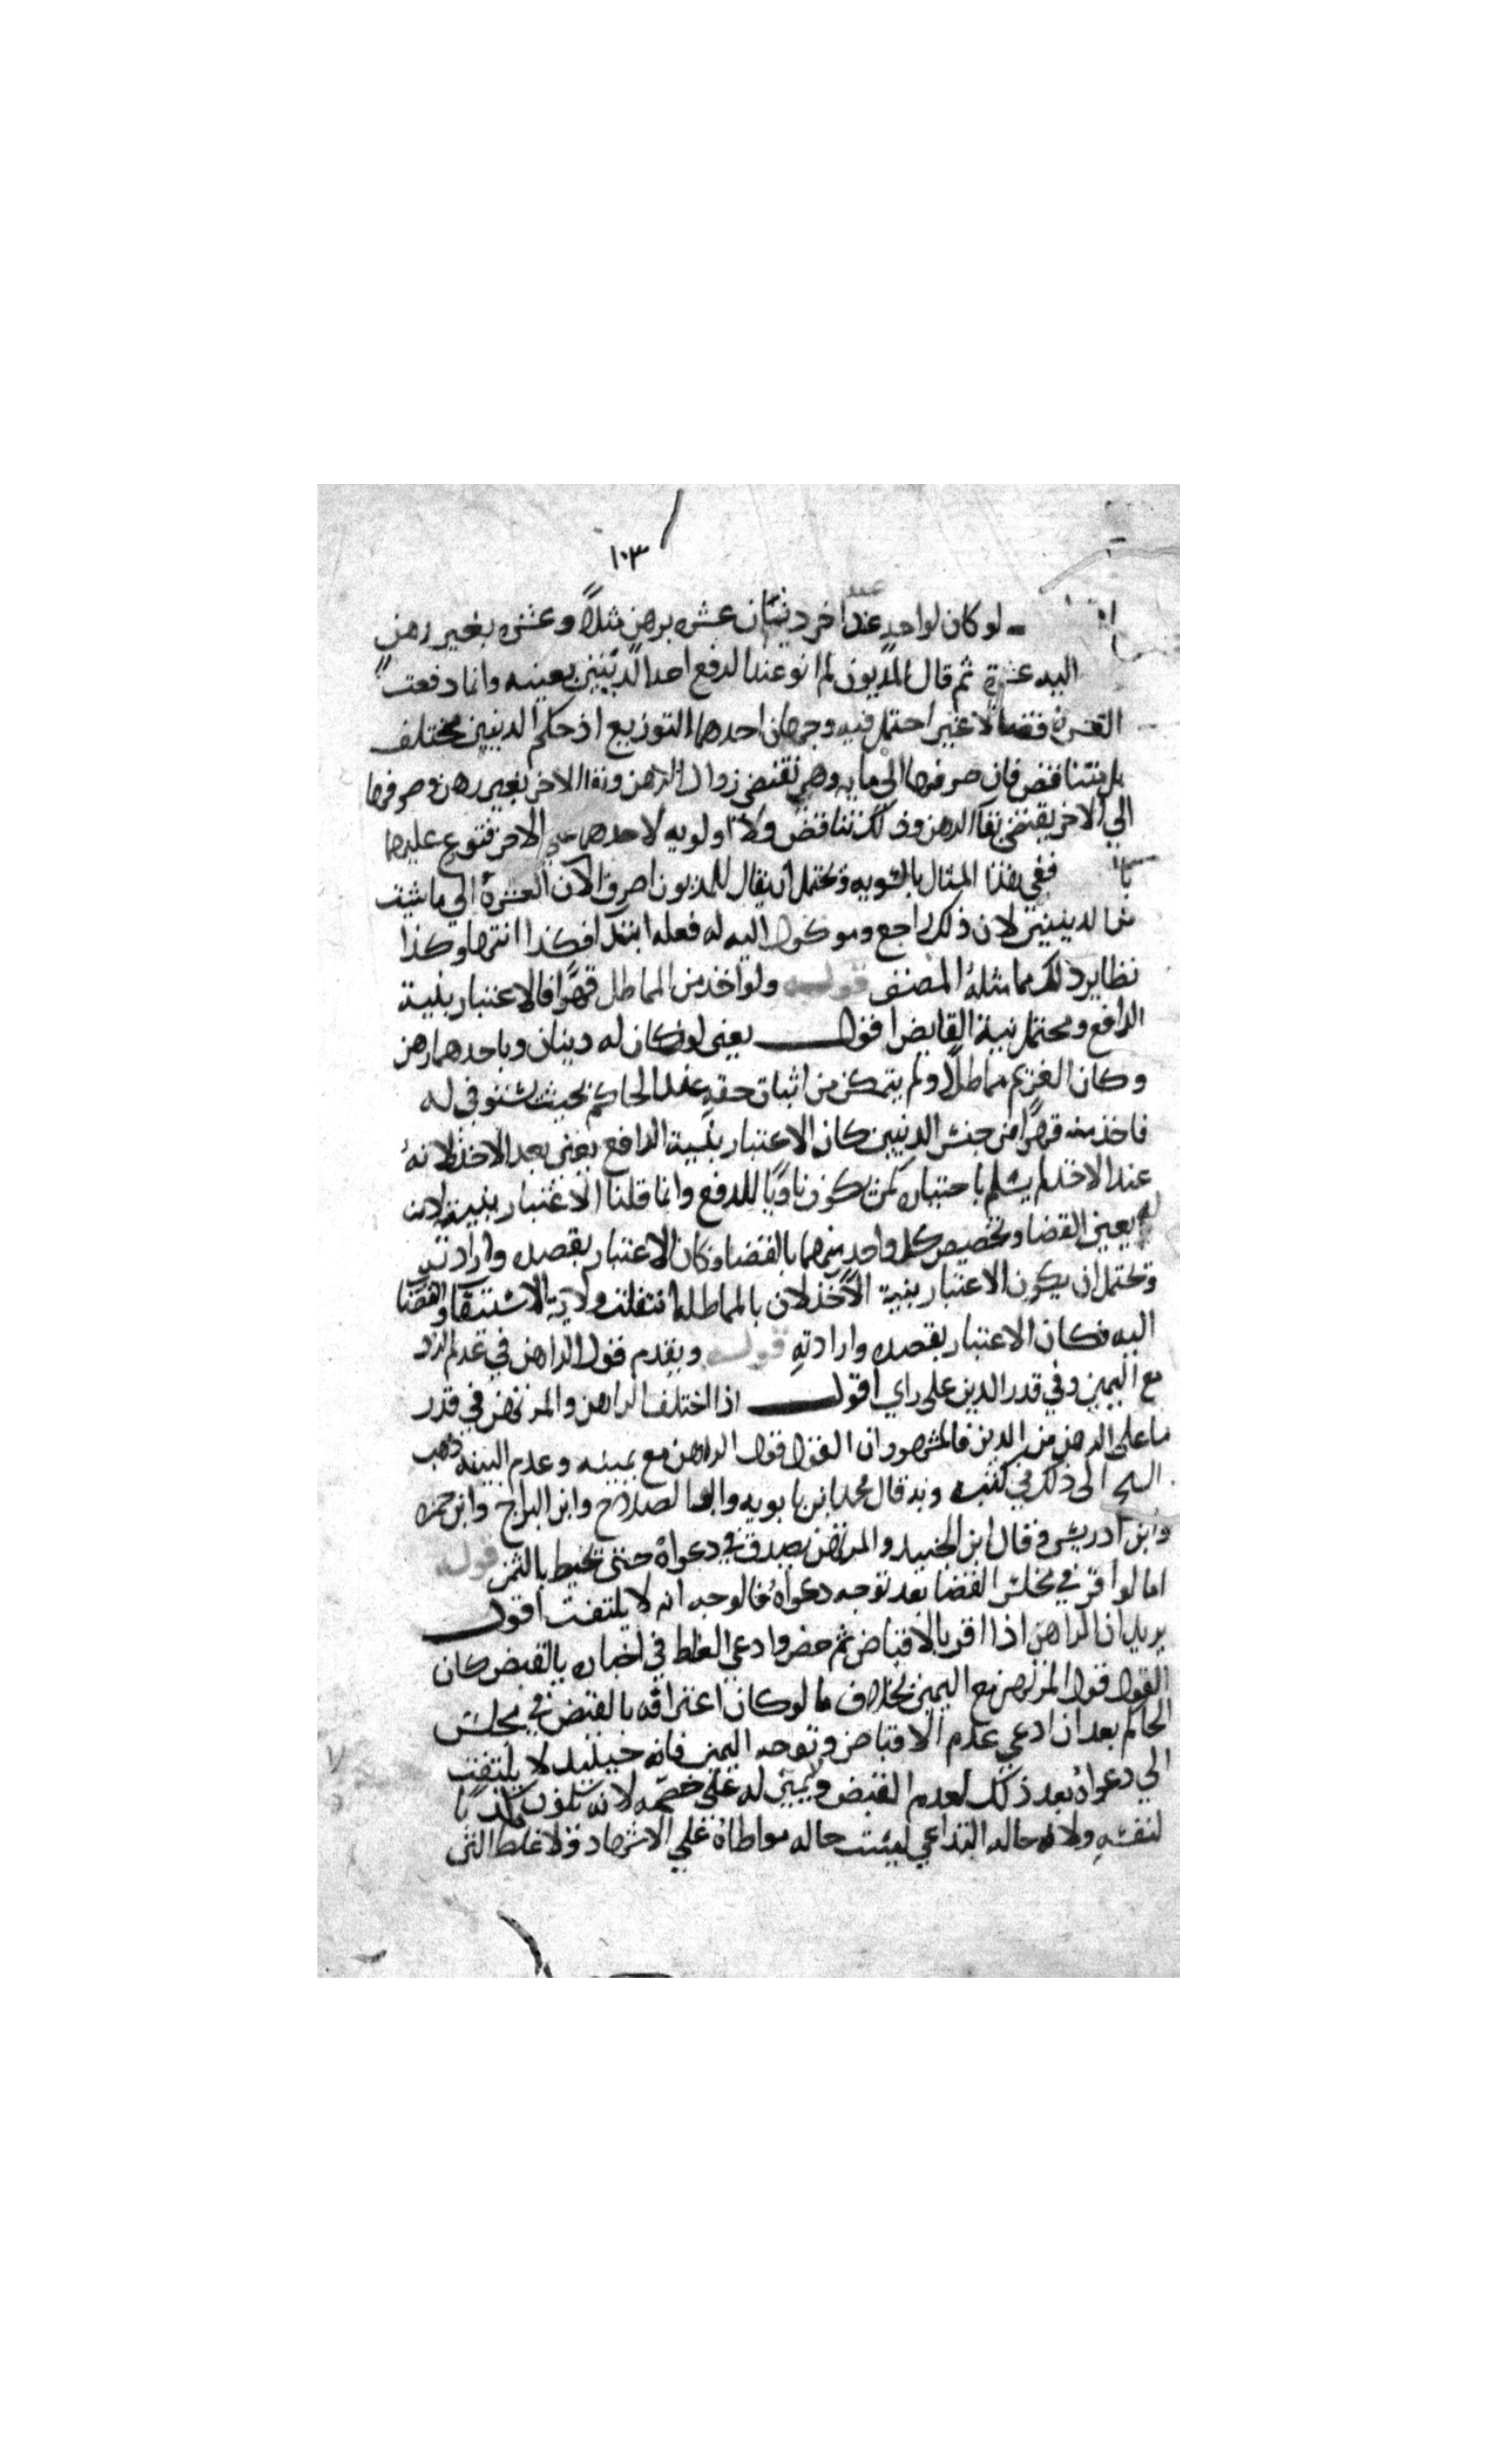 ١٠٣
لو كان لواحدٍ عند اخر دينان عشره برهنٍ مثلاً وعشره بغير رهنٍ
اليه عشرة ثم قال المديون لم انو عند الدفع احد الدينين بعينه وانما دفعت
العشرة قضاً لا غير احتمل فيه وجهان احدهما التوزيع اذ حكم الدينين مختلف
بل يتناقض فان صرفها الى ما به وهن تقتضي زوال الرهن وبقاء الاخر بغير رهن وصرفها
الي الاخر يقتضي بقآ الرهن وذلك تناقض ولا اولويه لاحدهما علي الاخر فتوزع عليهما
ففي هذا المثال بالسويه ويحتمل ان يقال للمديون اصرف الآن العشرة الي ما شيت
من الدينين لان ذلك راجع وموكول اليه له فعله ابتدا فكذا انتها وكذا
نظاير ذلك مما مثله المصنف قوله ولو اخذ من المماطل قهرًا فالاعتبار بنية
الدافع ويحتمل نية القابض اقول يعني لو كان له دينان وباحدهما رهن
وكان الغريم مماطلاً ولم يتمكن من اثبات حقه عند الحاكم بحيث يستوفي له
فاخذ منه قهرًا من جنس الدينين كان الاعتبار بنية الدافع يعني بعد الاخذ لانه
عند الاخذ لم يسلم باختياره كمن يكون ناويًا للدفع وانما قلنا الاعتبار بنيته لان
له يعين القضا وتخصيص كل واحد منهما بالقضا وكان الاعتبار بقصده وارادته
ويحتمل ان يكون الاعتبار بنية الآخذ لان بالمماطله انتقلت ولاية الاستيفا والقضا
اليه فكان الاعتبار بقصده وارادتهِ قوله ويقدم قول الراهن في عدم الرد
مع اليمين وفي قدر الدين على راي اقول اذا اختلف الراهن والمرتهن في قدر
ما على الرهن من الدين فالمشهور ان القول قول الراهن مع يمينه وعدم البينه ذهب
الشيخ الى ذلك في كتبه وبه قال محمد ابن بابويه وابو الصلاح وابن البراج وابن حمزه
وابن ادريس وقال ابن الجنيد والمرتهن يصدق في دعواه حتى تحيط بالثمن قوله
اما لو اقر في مجلس القضا بعد توجه دعواه فالوجه انه لا يلتفت اقول
يريد ان الراهن اذا اقر بالاقباض ثم حضر وادعي الغلط في اخباره بالقبض كان
القول قول المرتهن مع اليمين بخلاف ما لو كان اعترافه بالقبض في مجلس
الحاكم بعد ان ادعي عدم الاقباض وتوجه اليمين فانه حينيذ لا يلتفت
الي دعواه بعد ذلك لعدم القبض ولا يمين له علي خصمه لانه يكون مكذبا
لنفسهِ ولان حاله التداعي ليست حاله مواطاة علي الاشهاد ولا غلط التي